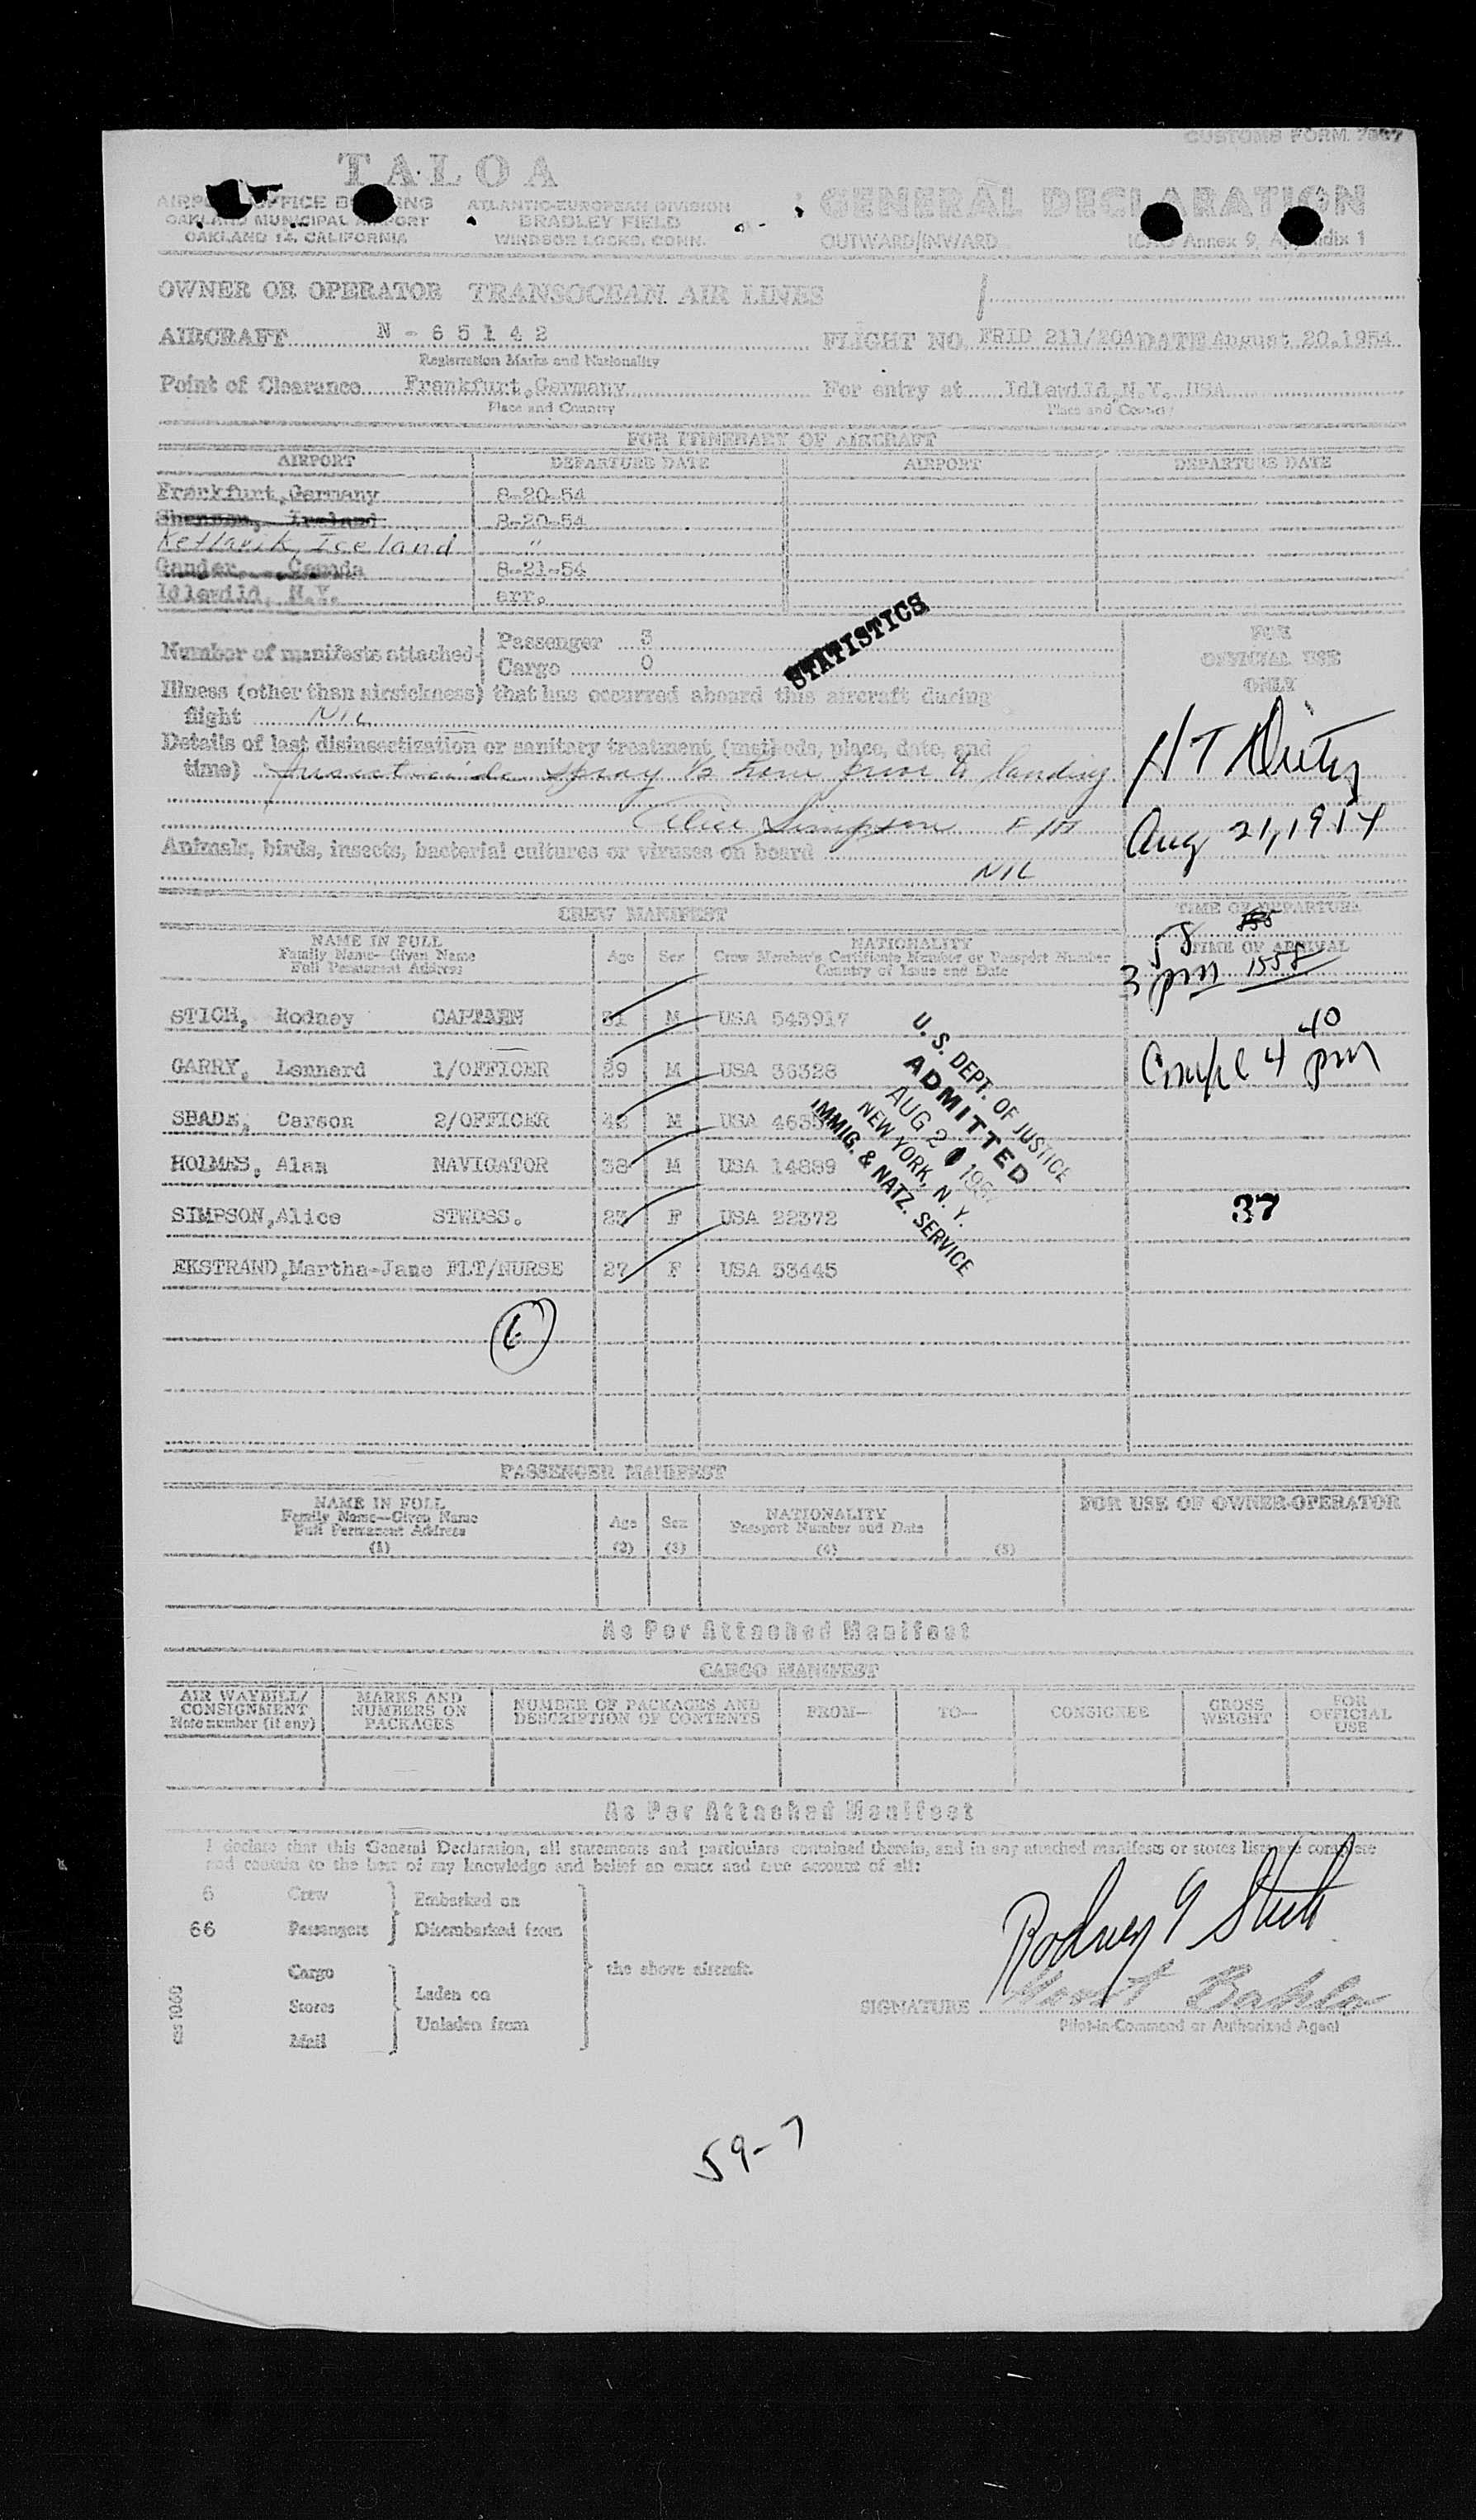 CUSTOMS FORM 7507
TALOA
GENERAL DECLARATION
OAKLAND MUNICIPAL AIRPORT
OAKLAND 14, CALIFORNIA
ATLANTIC-EUROPEAN DIVISION
BRADLEY FIELD
WINDSOR LOCKS, CONN.
OUTWARD/INWARD
Annex 9, Appendix 1
OWNER OR OPERATOR TRANSOCEAN AIR LINES
AIRCRAFT N - 65142 FLIGHT NO. FRID 211/20A DATE August 20,1954
Registration Marks and Nationality
Point of Clearance Frankfurt,Germany For entry at Idlewild,N.Y. USA
Place and Country Place and Country
FOR ITINERARY OF AIRCRAFT
AIRPORT DEPARTURE DATE AIRPORT DEPARTURE DATE
Frankfurt,Germany 8-20-54
Shannon, Ireland 8-20-54
Keflavik, Iceland "
Gander, Canada 8-21-54
Idlewild, N.Y. arr.
STATISTICS
Number of manifests attached Passenger 3
Cargo 0
FOR
OFFICIAL USE
ONLY
Illness (other than airsickness) that has occurred aboard this aircraft during
flight NIL
Details of last disinsectization or sanitary treatment (methods, place, date, and
time) Insecticide spray 1/2 hour prior to landing
Alice Simpson
H T
Aug 21, 1954
Animals, birds, insects, bacterial cultures or viruses on board
NIL
CREW MANIFEST
TIME OF DEPARTURE
TIME OF ARRIVAL
3 58 pm 1558
NAME IN FULL
Family Name—Given Name
Full Permanent Address
Age Sex
NATIONALITY
Crew Member's Certificate Number or Passport Number
Country of Issue and Date
STICH, Rodney CAPTAIN 31 M USA 543917
GARRY, Lennard 1/OFFICER 29 M USA 36328
SPADE, Carson 2/OFFICER 42 M USA
HOLMES, Alan NAVIGATOR 38 M USA 14889
SIMPSON,Alice STWDSS. 23 F USA 22372
EKSTRAND,Martha-Jane FLT/NURSE 27 F USA 53445
Compl 4 40 pm
U. S. DEPT. OF JUSTICE
ADMITTED
AUG 21 195
NEW YORK, N. Y.
IMMIG. & NATZ. SERVICE
37
6
PASSENGER MANIFEST
NAME IN FULL
Family Name—Given Name
Full Permanent Address
(1)
Age
(2)
Sex
(3)
NATIONALITY
Passport Number and Date
(4)
(5)
FOR USE OF OWNER-OPERATOR
As Per Attached Manifest
CARGO MANIFEST
AIR WAYBILL/
CONSIGNMENT
Note number (if any)
MARKS AND
NUMBERS ON
PACKAGES
NUMBER OF PACKAGES AND
DESCRIPTION OF CONTENTS
FROM—
TO—
CONSIGNEE
GROSS
WEIGHT
FOR
OFFICIAL
USE
As Per Attached Manifest
I declare that this General Declaration, all statements and particulars contained therein, and in any attached manifests or stores lists are complete
and contain to the best of my knowledge and belief an exact and true account of all:
6 Crew Embarked on
66 Passengers Disembarked from
the above aircraft.
Cargo
Stores Laden on
Mail Unladen from
Rodney Stich
SIGNATURE
Pilot-in-Command or Authorized Agent
59-7